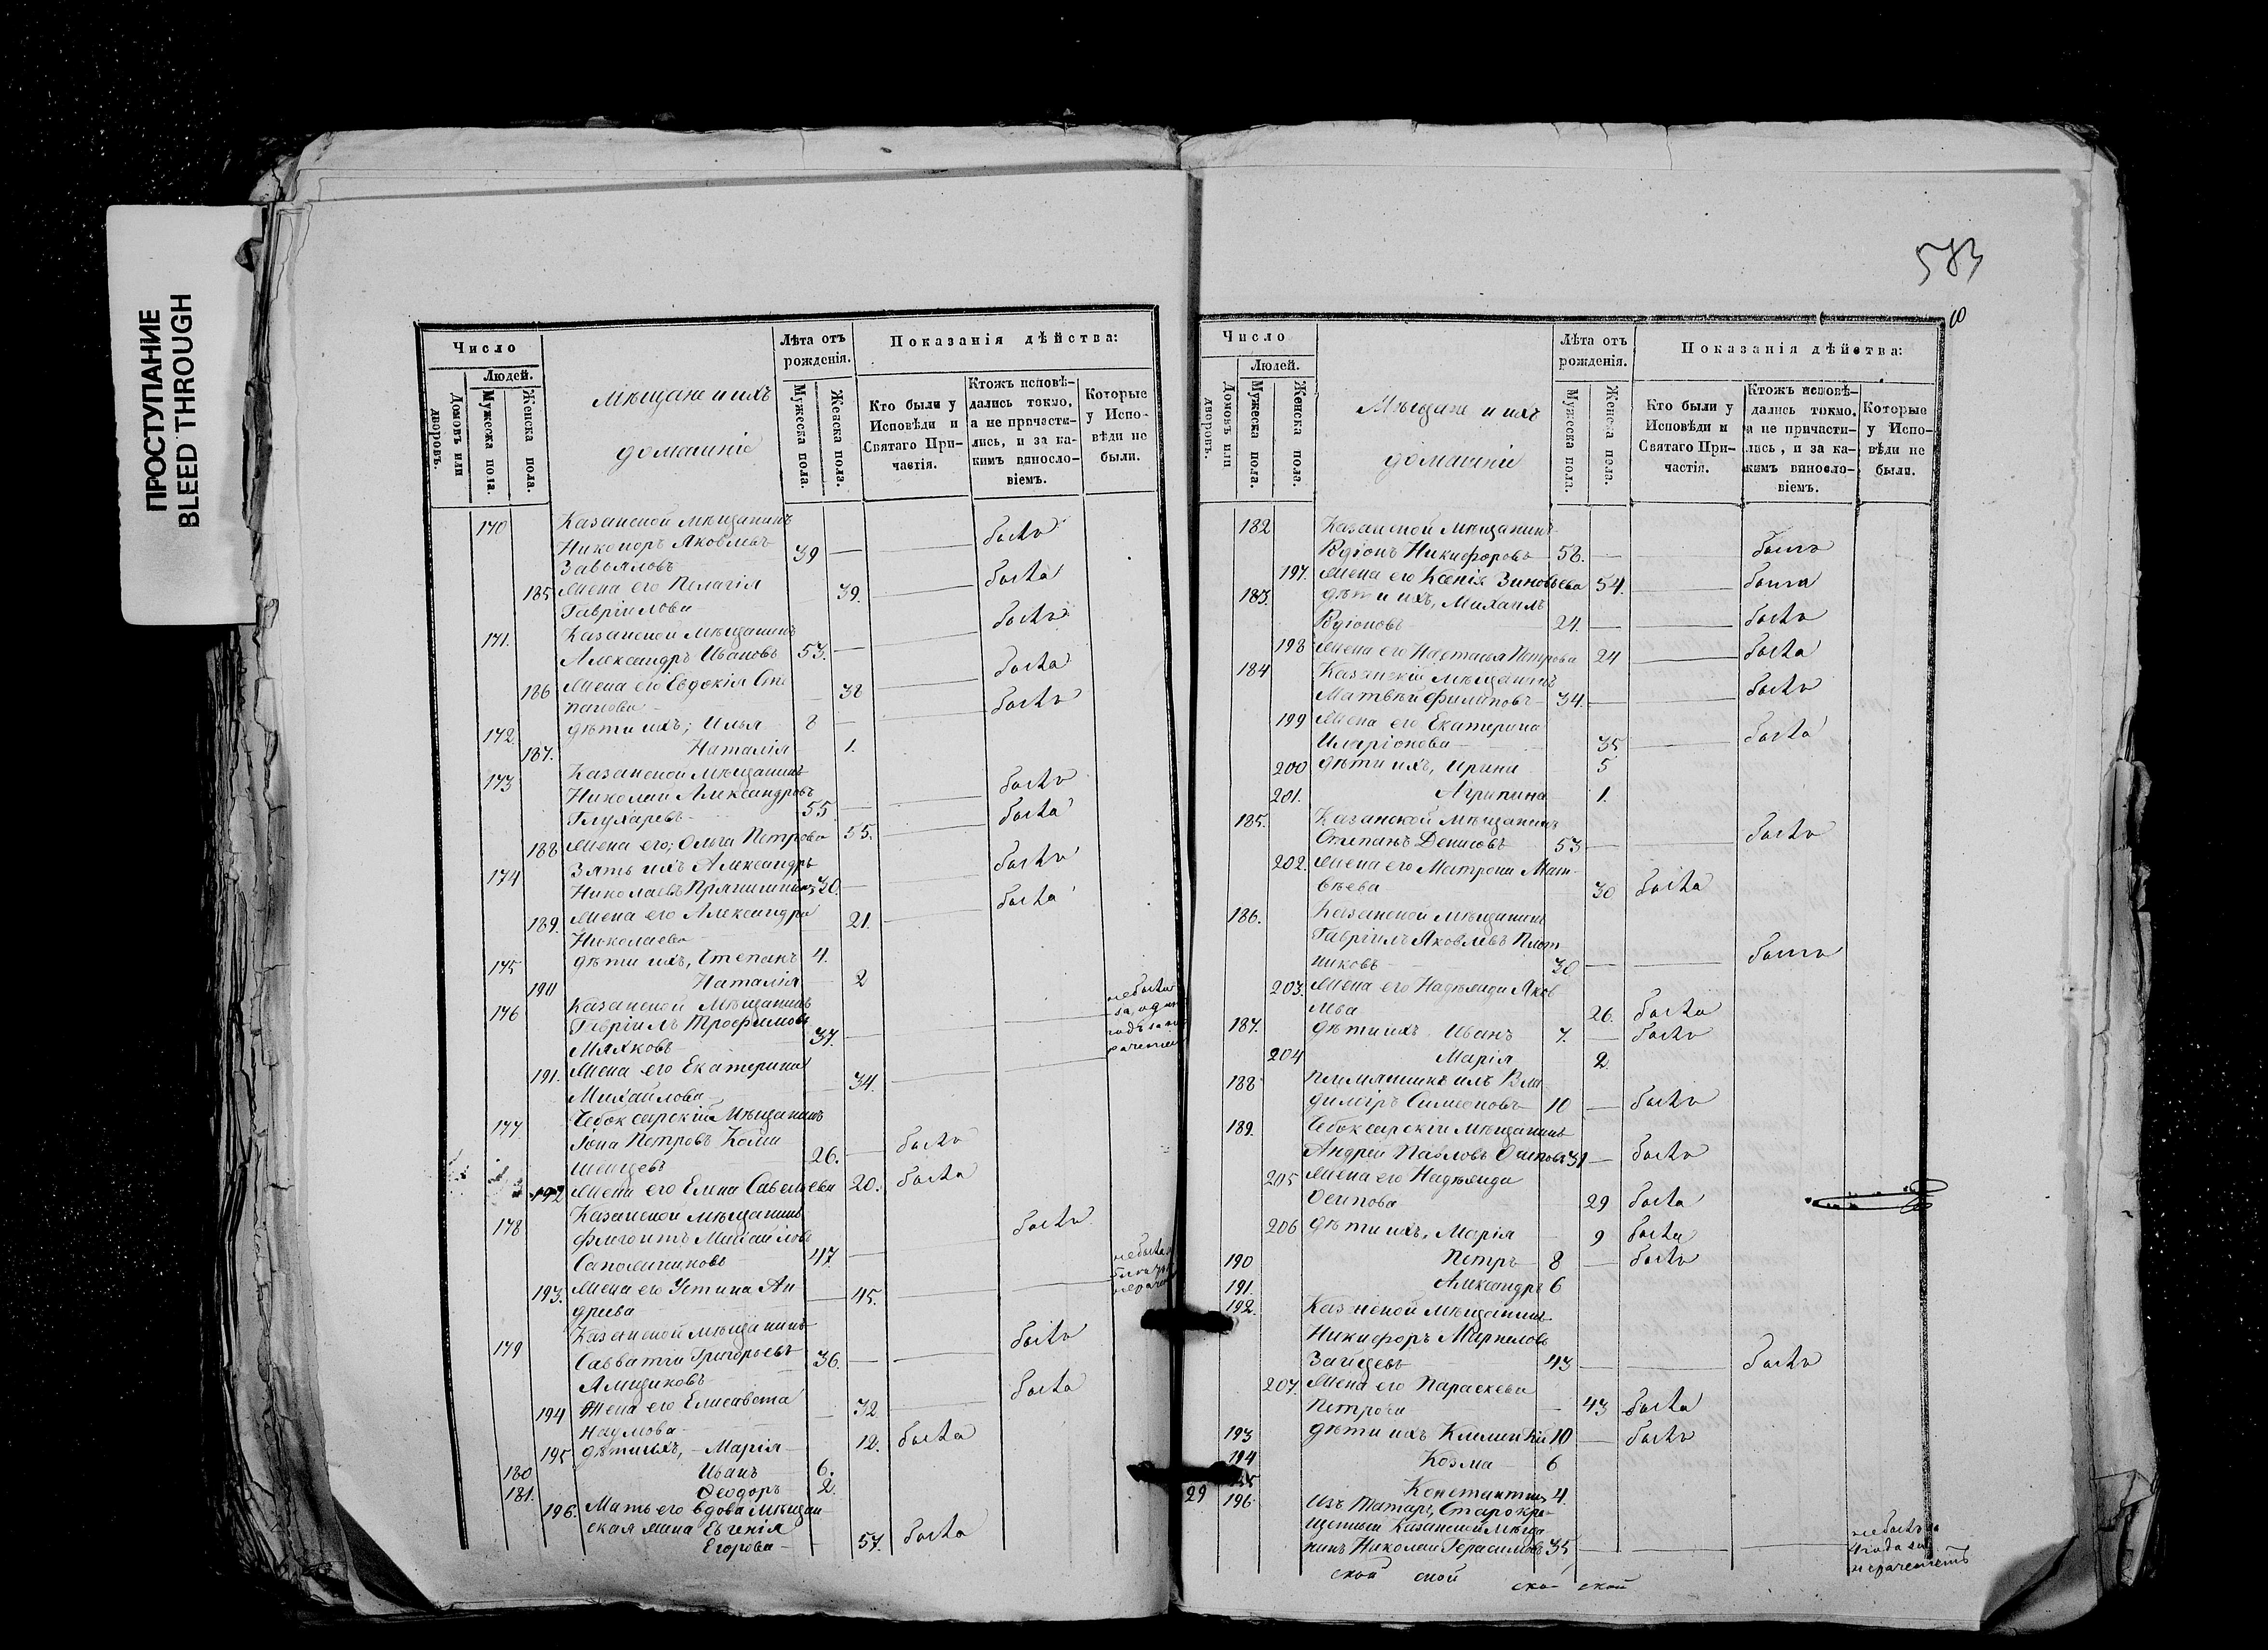 ПРОСТУПАНИЕ
BLEED THROUGH
583
Число
Людей.
Домовъ или дворовъ.
Мужеска пола.
Женска пола.
Мѣщане и ихъ
домашніе
Лѣта отъ
рожденія.
Мужеска пола.
Женска пола.
Показанія дѣйства:
Кто были у
Исповѣди и
Святаго При-
частія.
Ктожъ исповѣ-
дались токмо,
а не причасти-
лись, и за ка-
кимъ винословіемъ.
Которые
у Испо-
вѣди не
были.
170 Казанской мѣщанинъ
Никоноръ Яковлевъ
Завьяловъ 39 — — былъ
185 Жена его Пелагія
Гавріилова 39. — была
171. Казанской мѣщанинъ
Александръ Ивановъ 53. — — былъ
186 Жена его Евдокія Сте
панова — 38 — была
172. дѣти ихъ; Илья 8 — былъ
187. Наталія 1.
173 Казанской мѣщанинъ
Николай Александровъ
Глухаревъ 55 — — былъ
188 Жена его; Ольга Петрова 55. — была
174 Зять ихъ Александръ
Николаевъ Прянишниковъ 30. — былъ
189. Жена его Александра
Николаева 21. — была
175 дѣти ихъ, Степанъ 4.
190 Наталія 2
176 Казанской Мѣщанинъ
Гавріилъ Трофимовъ
Мялковъ 37. — — — не былъ
за один
годъ
191. Жена его Екатерина
Михайлова 34. — —
177. Чебоксарскій Мѣщанинъ
Іона Петровъ Коми
шенцевъ 26. — былъ
192 Жена его Елена Савельева 20. была
178 Казанской мѣщанинъ
Флегонтъ Михайловъ
Сапожниковъ 47 — — былъ
193. Жена его Устина Ан
дреева — 45. — — не была
179 Казанской мѣщанинъ
Савватій Григорьевъ
Ямщиковъ 36. — — былъ
194 Жена его Елисавета
Наумова — 32 — была
195 дѣти ихъ, — Марія 12. была
180 Иванъ 6.
181. Ѳеодоръ 2.
196. Мать его вдова мѣщан
ская жена Евгенія
Егорова 57. была
Число
Людей.
Домовъ или дворовъ.
Мужеска пола.
Женска пола.
Мѣщане и ихъ
домашніе
Лѣта отъ
рожденія.
Мужеска пола.
Женска пола.
Показанія дѣйства:
Кто были у
Исповѣди и
Святаго При-
частія.
Ктожъ исповѣ-
дались токмо,
а не причасти-
лись, и за ка-
кимъ винословіемъ.
Которые
у Испо-
вѣди не
были.
182 Казанской мѣщанинъ
Родіонъ Никифоровъ 58. — — былъ
197. Жена его Ксенія Зиновьева 54. — была
183. дѣти ихъ, Михаилъ
Родіоновъ 24. — — былъ
198 Жена его Настасья Петрова 24 — была
184 Казанскій мѣщанинъ
Матвѣй Филиповъ 34. — — былъ
199 Жена его Екатерина
Иларіонова 35 — была
200 дѣти ихъ, Ирина 5
201. Агрипина 1.
185. Казанской Мѣщанинъ
Степанъ Денисовъ 53 — — былъ
202. Жена его Матрона Мат-
вѣева 30 была
186. Казанской мѣщанинъ
Гавріилъ Яковлевъ Плот-
никовъ 30. — — былъ
203. Жена его Надежда Яков
лева 26. была
187. дѣти ихъ Иванъ 7. — былъ
204 Марія 2.
188 Племянникъ ихъ Вла-
димиръ Симеоновъ 10 — былъ
189. Чебоксарскій Мѣщанинъ
Андрей Павловъ Осиповъ 31 — былъ
205 Жена его Надежда
Осипова 29 была
206 дѣти ихъ, Марія 9 была
190 Петръ 8 — былъ
191. Александръ 6
192. Казанской Мѣщанинъ
Никифоръ
Зайцевъ 43 — — былъ
207. Жена его Параскева
Петрова — 43 была
193 дѣти ихъ Климентій 10 — былъ
194 Козма 6
195 Константинъ 4.
29 196. Изъ Татаръ, Старокре-
щеный Казанской мѣща
нинъ Николай Герасимовъ 35 — — — не былъ за
4 года за
нераченіемъ
ской ской ско ской